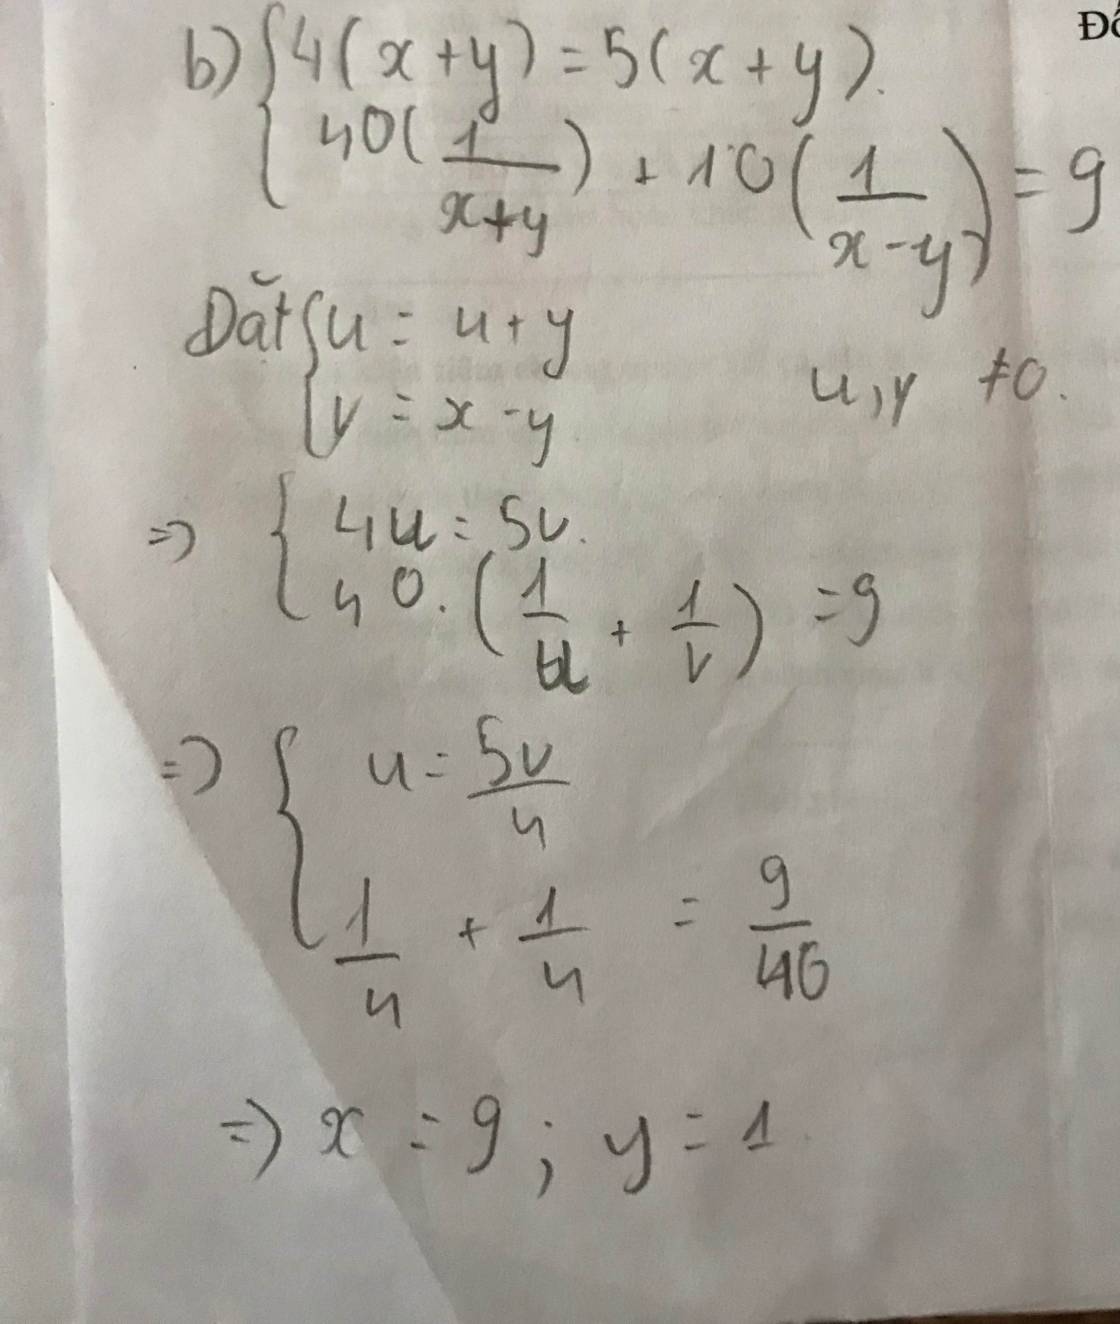 Đố
b) { 4(x+y) = 5(x+y).
40(1/(x+y)) + 10(1/(x-y)) = 9
Dắt { u = u+y
u,y ≠0.
v = x-y
=> { 4u = 5v.
40.(1/u + 1/v) = 9
=> { u = 5v/4
1/u + 1/u = 9/40
=> x = 9 ; y = 1